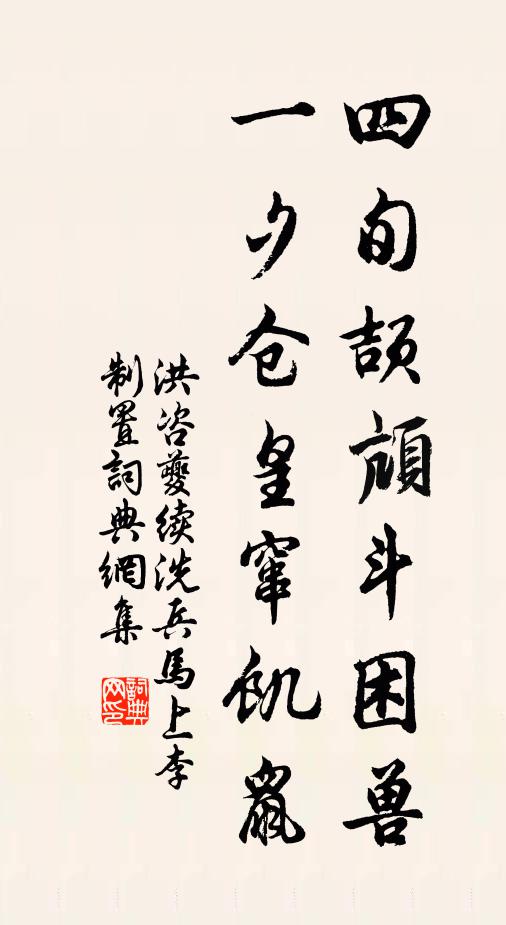 四旬颉颃斗困兽
一夕仓皇窜饥鼠
洪咨夔续洗兵馬上李
制置詞典網集
詞典网印